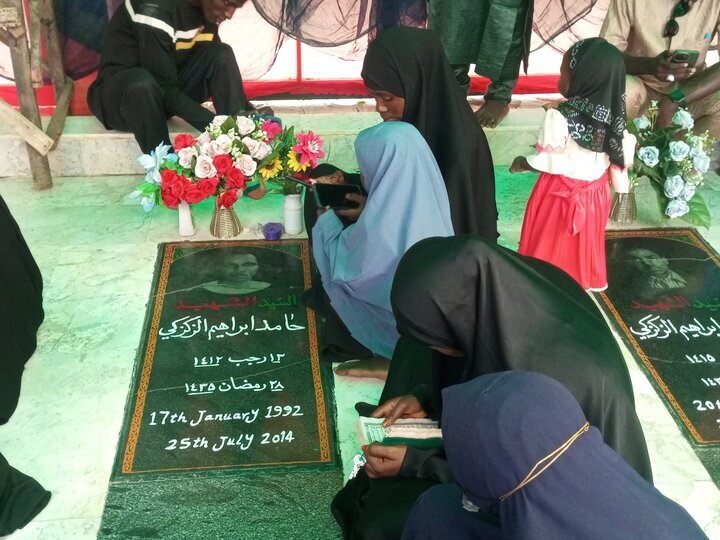 السيد الشهيد
حامد ابراهيم الزكزكي
١٣ رجب ١٤١٢
٢٨ رمضان ١٤٣٥
17th January 1992
25th July 2014
السيد الشهيد
ابراهيم الزكزكي
١٤١٥
20th